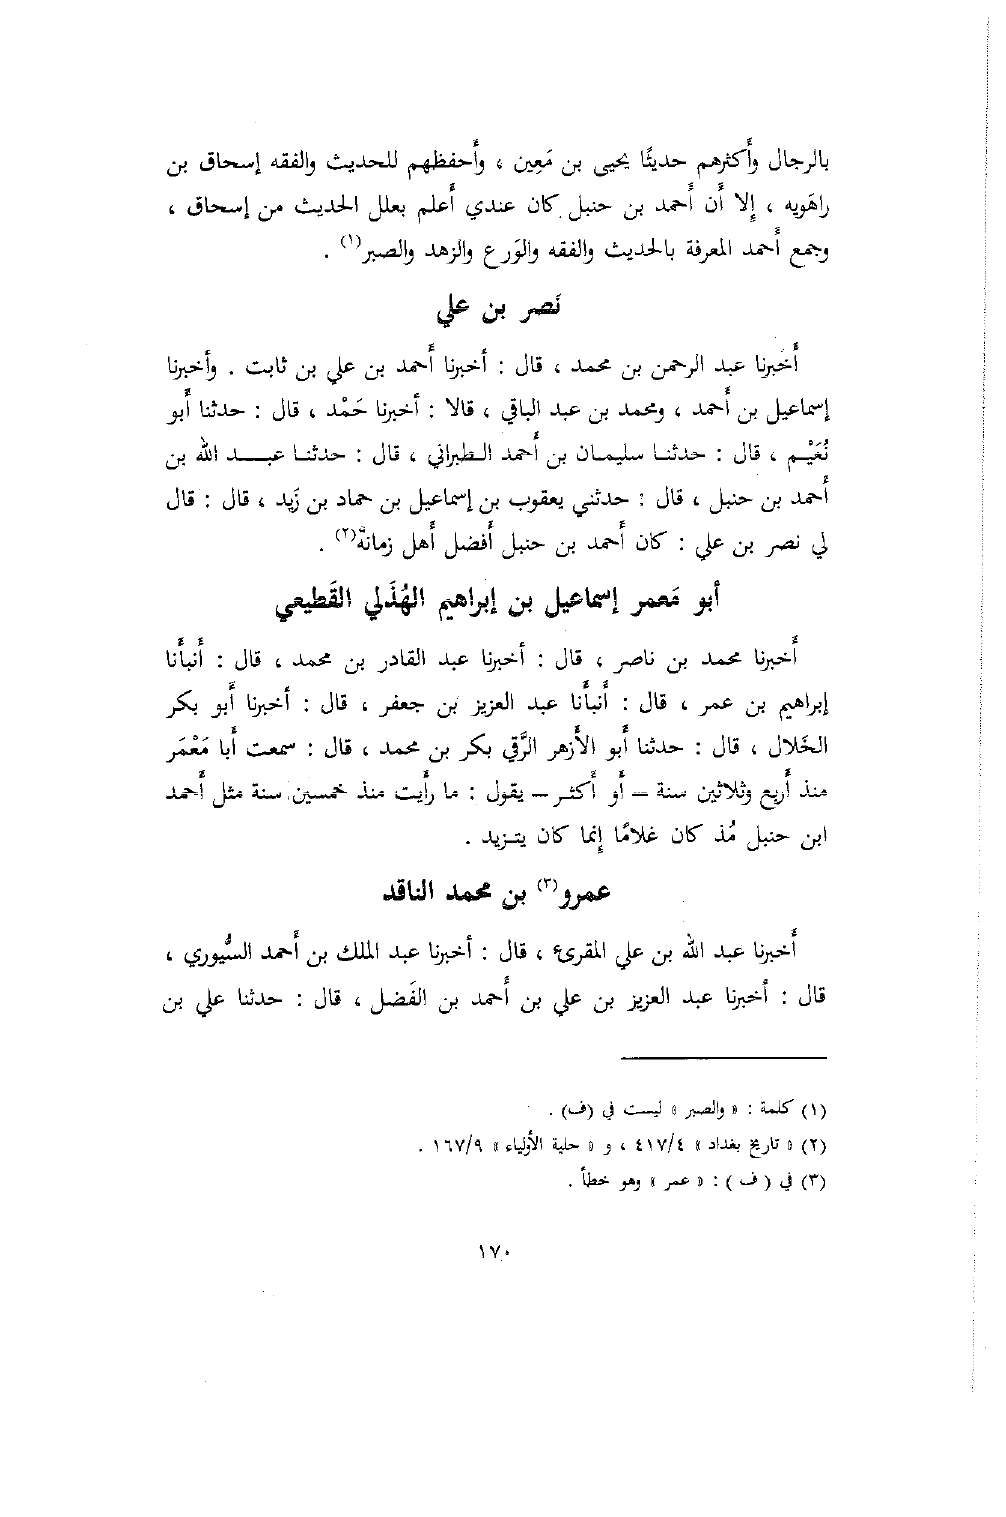 بالرجال وأكثرهم حديثًا يحيى بن مَعِين ، وأحفظهم للحديث والفقه إسحاق بن
راهَويه ، إلا أن أحمد بن حنبل كان عندي أعلم بعلل الحديث من إسحاق ،
وجمع أحمد المعرفة بالحديث والفقه والوَرع والزهد والصبر(١) .
نَصر بن علي
أخبرنا عبد الرحمن بن محمد ، قال : أخبرنا أحمد بن علي بن ثابت . وأخبرنا
إسماعيل بن أحمد ، ومحمد بن عبد الباقي ، قالا : أخبرنا حَمْد ، قال : حدثنا أبو
نُعَيْم ، قال : حدثنا سليمان بن أحمد الطبراني ، قال : حدثنا عبد الله بن
أحمد بن حنبل ، قال : حدثني يعقوب بن إسماعيل بن حماد بن زَيد ، قال : قال
لي نصر بن علي : كان أحمد بن حنبل أفضل أهل زمانه(٢) .
أبو مَعمر إسماعيل بن إبراهيم الهُذَلي القَطيعي
أخبرنا محمد بن ناصر ، قال : أخبرنا عبد القادر بن محمد ، قال : أنبأنا
إبراهيم بن عمر ، قال : أنبأنا عبد العزيز بن جعفر ، قال : أخبرنا أبو بكر
الخَلال ، قال : حدثنا أبو الأزهر الرَّقي بكر بن محمد ، قال : سمعت أبا مَعْمَر
منذ أربع وثلاثين سنة – أو أكثر – يقول : ما رأيت منذ خمسين سنة مثل أحمد
ابن حنبل مُذ كان غلامًا إنما كان يتزيد .
عمرو(٣) بن محمد الناقد
أخبرنا عبد الله بن علي المقرىء ، قال : أخبرنا عبد الملك بن أحمد السُّيوري ،
قال : أخبرنا عبد العزيز بن علي بن أحمد بن الفَضل ، قال : حدثنا علي بن
(١) كلمة : « والصبر » ليست في (ف) .
(٢) « تاريخ بغداد » ٤١٧/٤ ، و « حلية الأولياء » ١٦٧/٩ .
(٣) في ( ف ) : « عمر » وهو خطأ .
١٧٠